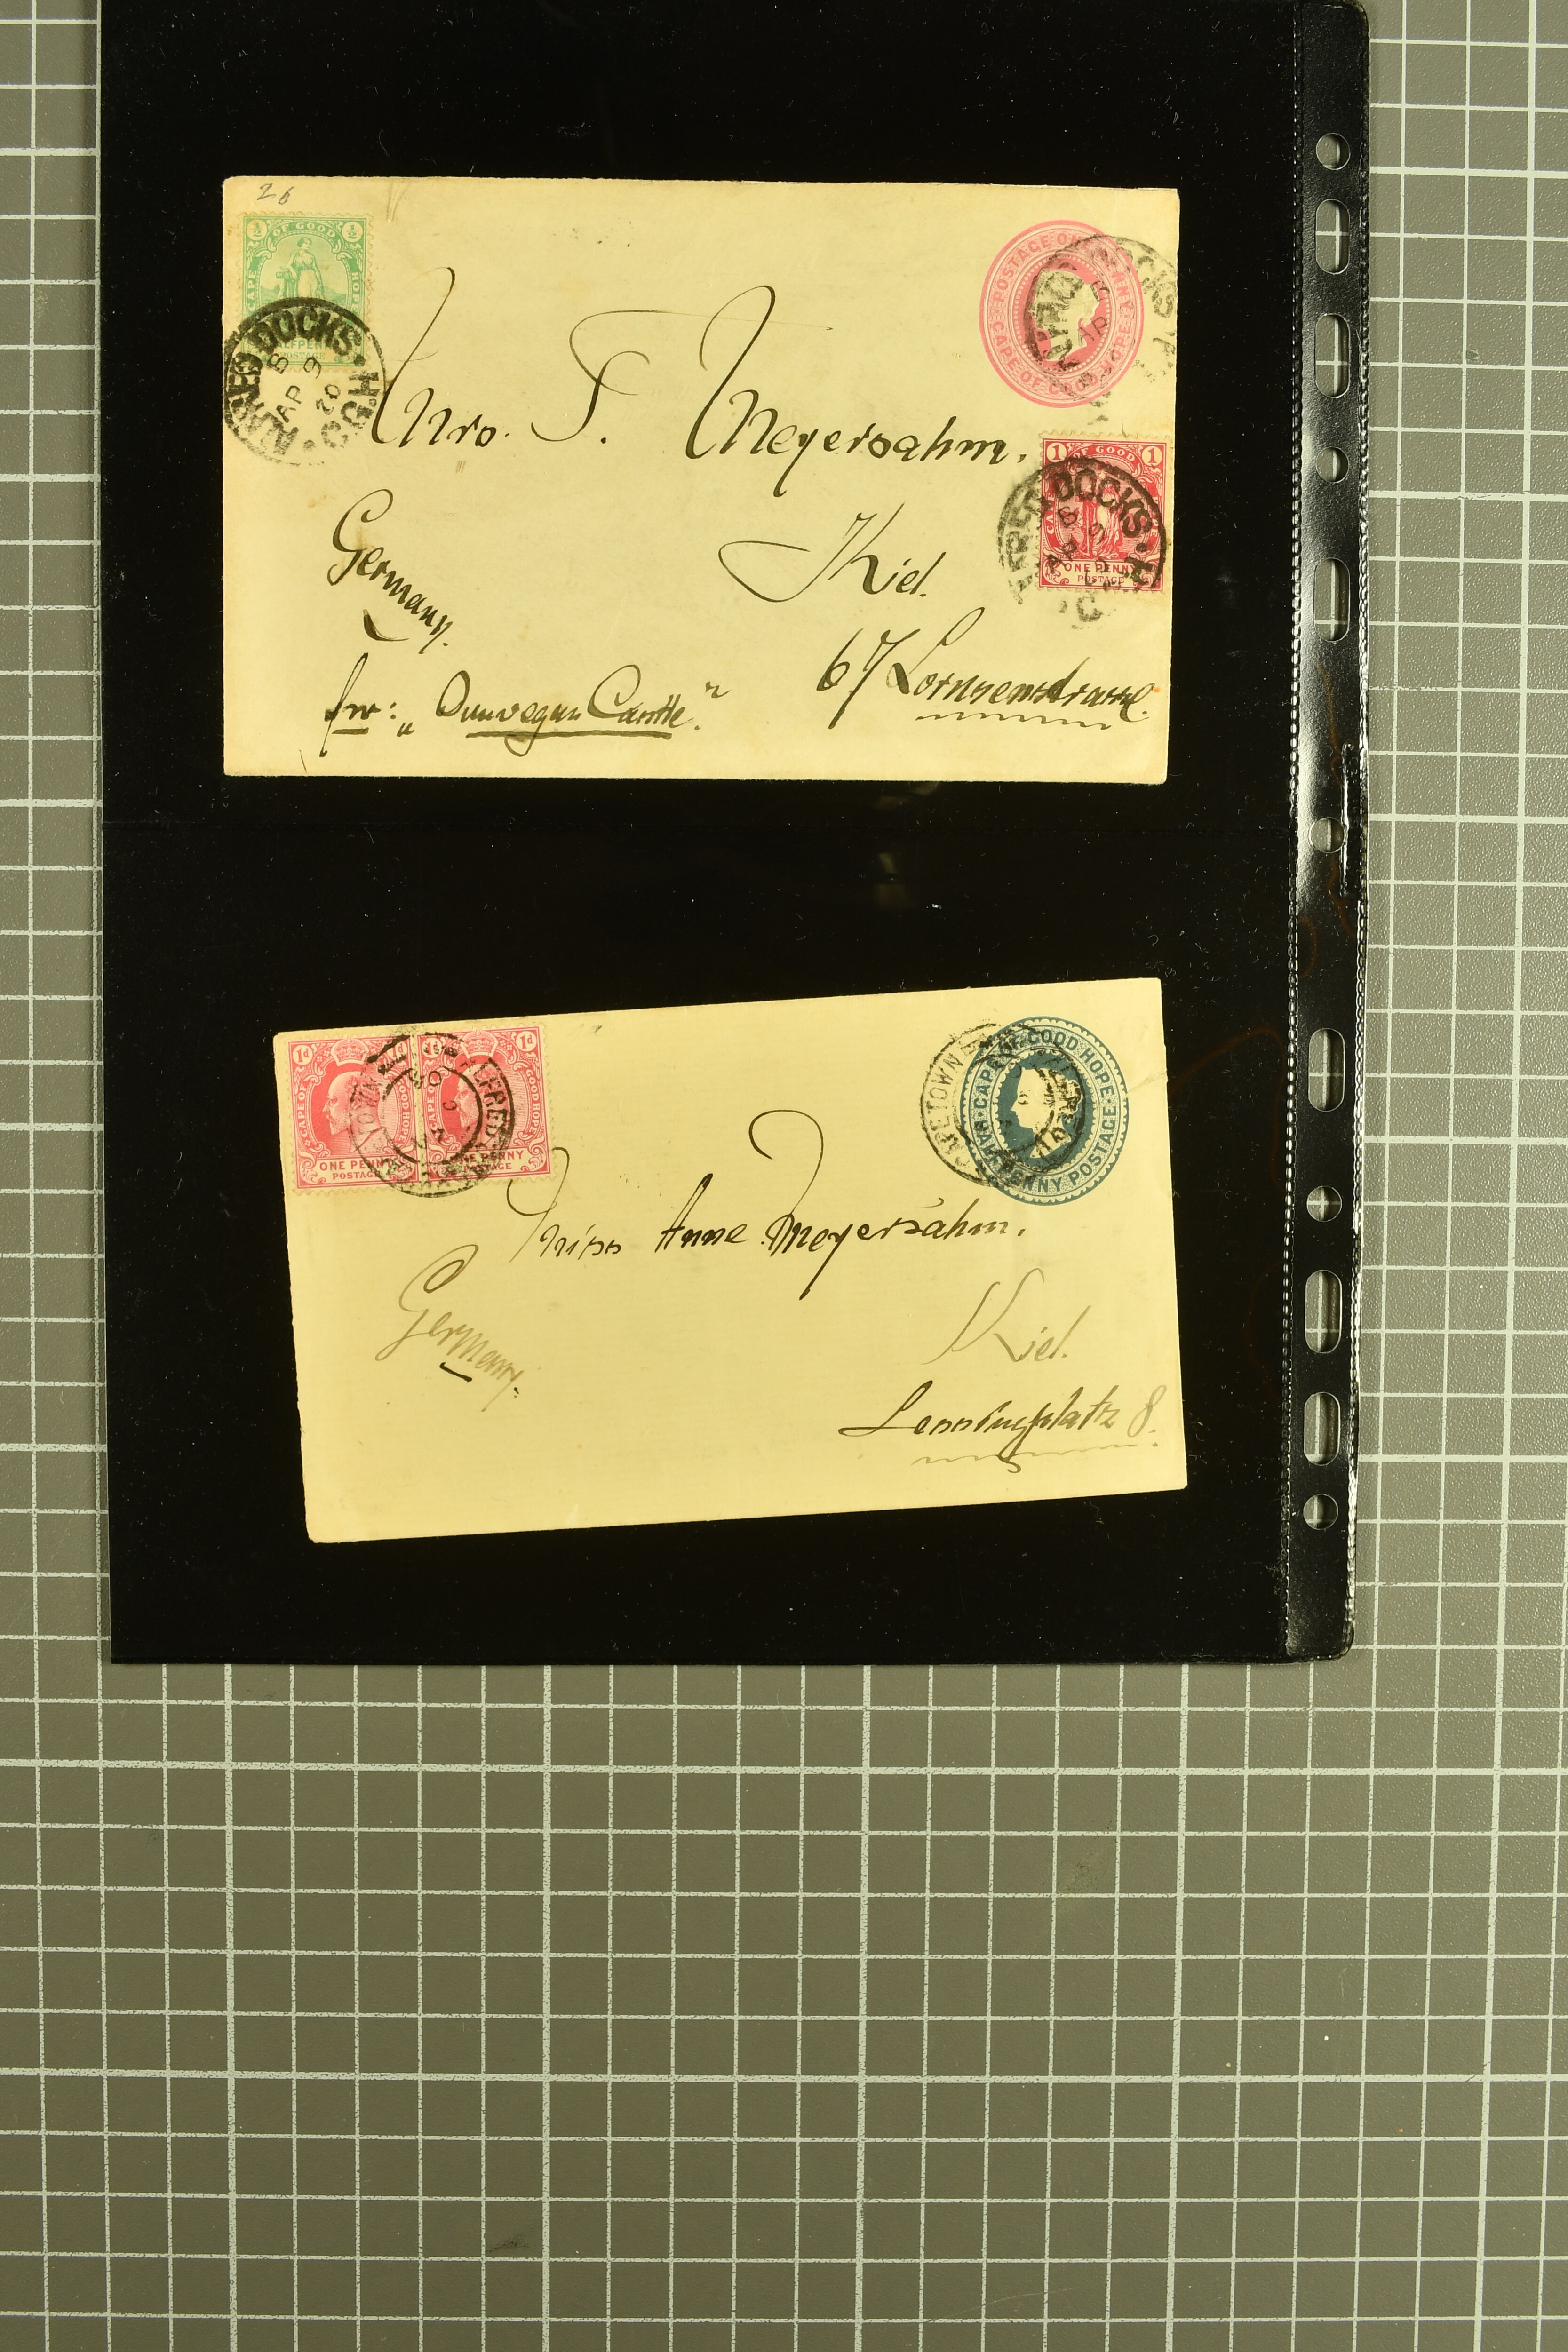 26
½ OF GOOD ½
CAPE HOPE
HALFPENNY
POSTAGE
ALFRED DOCKS. C.G.H
B
AP 9
POSTAGE ONE PENNY
CAPE OF GOOD HOPE
Mrs. F. Meyersahm.
1 OF GOOD 1
ONE PENNY
POSTAGE
DOCKS.
B
AP 9
Germany.
Kiel.
67 Lornsenstrasse.
per: „Dunvegan Castle."
1d 1d
CAPE OF GOOD HOPE
ONE PENNY
POSTAGE
1d
CAPE OF GOOD HOPE
ONE PENNY
POSTAGE
ALFRED
CAPETOWN
CAPE OF GOOD HOPE
HALFPENNY POSTAGE
Miss Anne Meyersahm.
Germany.
Kiel.
Lessingplatz 8.